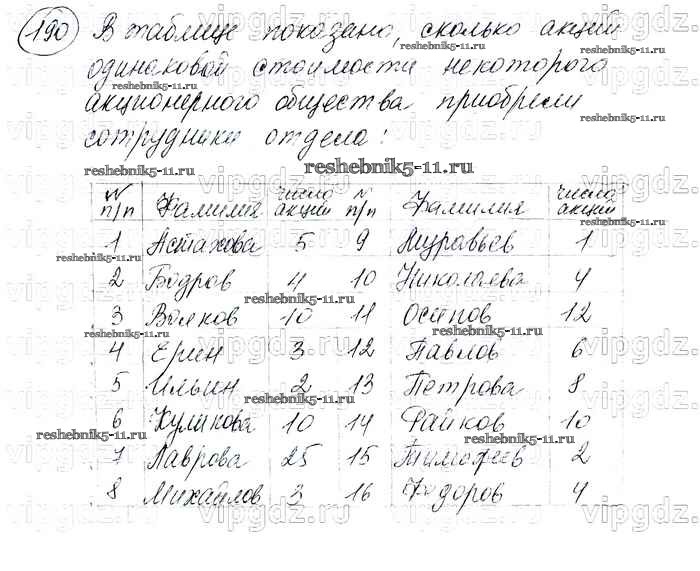 190 В таблице показано, сколько акций
одинаковой стоимости некоторого
акционерного общества приобрели
сотрудники отдела:
reshebnik5-11.ru
№ п/п Фамилия число акций № п/п Фамилия число акций
1 Астахова 5 9 Муравьёв 1
2 Бодров 4 10 Николаева 4
3 Волков 10 11 Осипов 12
4 Ерин 3 12 Павлов 6
5 Ильин 2 13 Петрова 8
6 Куликова 10 14 Райков 10
7 Лаврова 25 15 Тимофеев 2
8 Михайлов 3 16 Фёдоров 4
vipgdz.ru